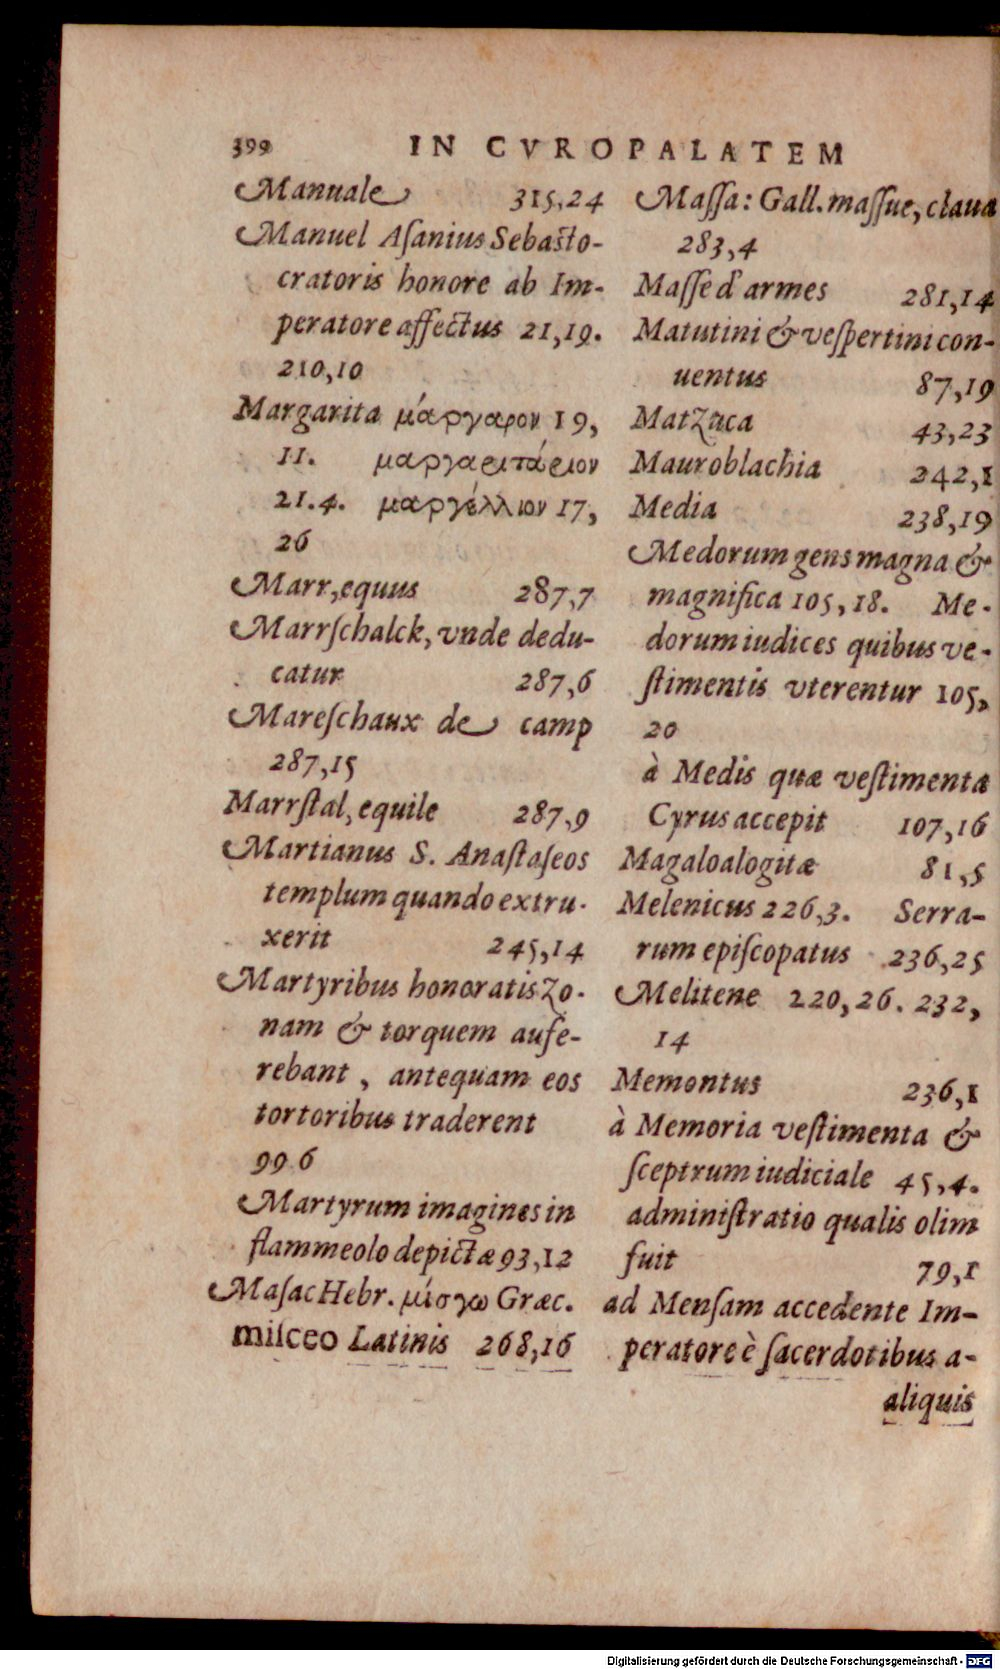 399 IN CVROPALATEM
Manuale 315,24
Manuel Aſanius Sebasto-
cratoris honore ab Im-
peratore affectus 21,19.
210,10
Margarita μάργαρον 19,
11. μαργαριτάριον
21.4. μαργέλλιον 17,
26
Marr, equus 287,7
Marrſchalck, vnde dedu-
catur 287,6
Mareſchaux de camp
287,15
Marrſtal, equile 287,9
Martianus S. Anaſtaſeos
templum quando extru-
xerit 245,14
Martyribus honoratis zo-
nam & torquem aufe-
rebant, antequam eos
tortoribus traderent
99 6
Martyrum imagines in
flammeolo depictæ 93,12
Maſac Hebr. μίσγω Græc.
miſceo Latinis 268,16
Maſſa: Gall. maſſue, claua
283,4
Maſſe d'armes 281,14
Matutini & veſpertini con-
uentus 87,19
Matzuca 43,23
Mauroblachia 242,1
Media 238,19
Medorum gens magna &
magnifica 105,18. Me-
dorum iudices quibus ve-
ſtimentis vterentur 105,
20
à Medis quæ veſtimenta
Cyrus accepit 107,16
Magaloalogitæ 81,5
Melenicus 226,3. Serra-
rum epiſcopatus 236,25
Melitene 220,26. 232,
14
Memontus 236,1
à Memoria veſtimenta &
ſceptrum iudiciale 45,4.
adminiſtratio qualis olim
fuit 79,1
ad Menſam accedente Im-
peratore è ſacerdotibus a-
aliquis
Digitalisierung gefördert durch die Deutsche Forschungsgemeinschaft - DFG